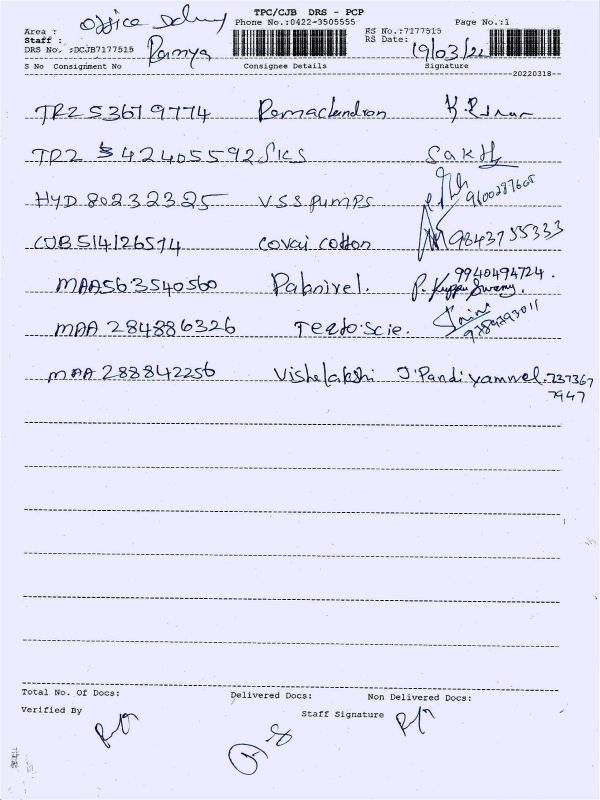 TPC/CJB DRS - PCP
Phone No.:0422-3505555
Page No.:1
Area : office
Staff : Ramya
DRS No. :DCJB7177515
RS No.:7177515
RS Date: 19/03/22
S No Consignment No Consignee Details Signature
--20220318--
TRZ 53679774 Ramachandran
TRZ 542405592 SKS Sakthi
HYD 80232325 VSS pumps 9600287605
CJB 514126574 covai cotton 9843755333
MAA563540560 Palanivel. 9940494724.
P. Kuppuswamy.
MAA 284886326
MAA 288842256 Vishalakshi 737367
7947
Total No. Of Docs: Delivered Docs: Non Delivered Docs:
Verified By Staff Signature